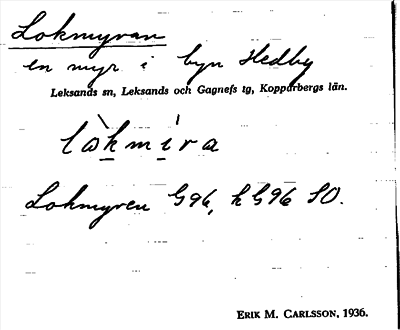 Lokmyran
en myr i byn Hedby
Leksands sn, Leksands och Gagnefs tg, Kopparbergs län.
lòkmíra
Lokmyren G96, h G96 SO.
ERIK M. CARLSSON, 1936.